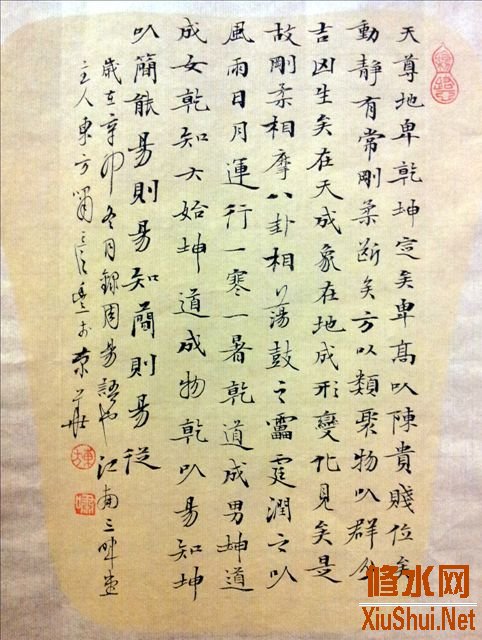 天尊地卑乾坤定矣卑高以陳貴賤位矣
動靜有常剛柔斷矣方以類聚物以群分
吉凶生矣在天成象在地成形變化見矣是
故剛柔相摩八卦相蕩鼓之雷霆潤之以
風雨日月運行一寒一暑乾道成男坤道
成女乾知大始坤道成物乾以易知坤
以簡能易則易知簡則易從
歲在辛卯冬月錄周易語江南三
主人東方
修水网
XiuShui.Net